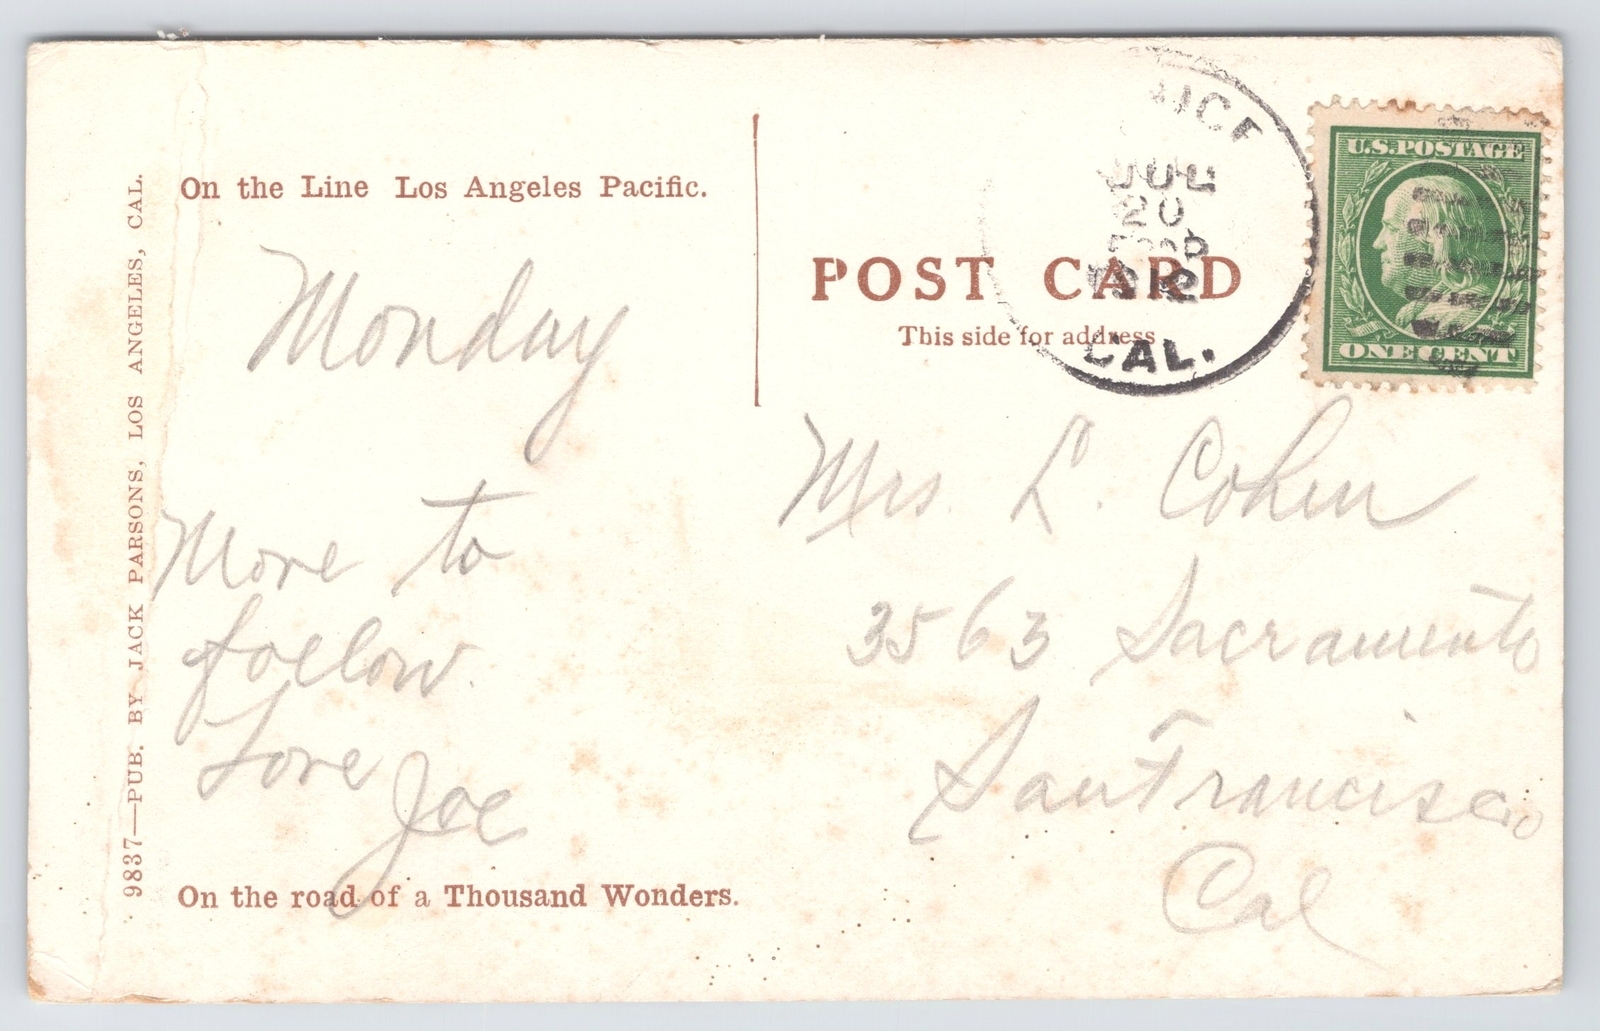 On the Line Los Angeles Pacific.
Monday
More to
follow.
Love
Joe
On the road of a Thousand Wonders.
9837—PUB. BY JACK PARSONS, LOS ANGELES, CAL.
JUL
20
1912
CAL.
U.S.POSTAGE
ONE CENT
POST CARD
This side for address
Mrs L. Cohen
3563 Sacramento
San Francisco
Cal